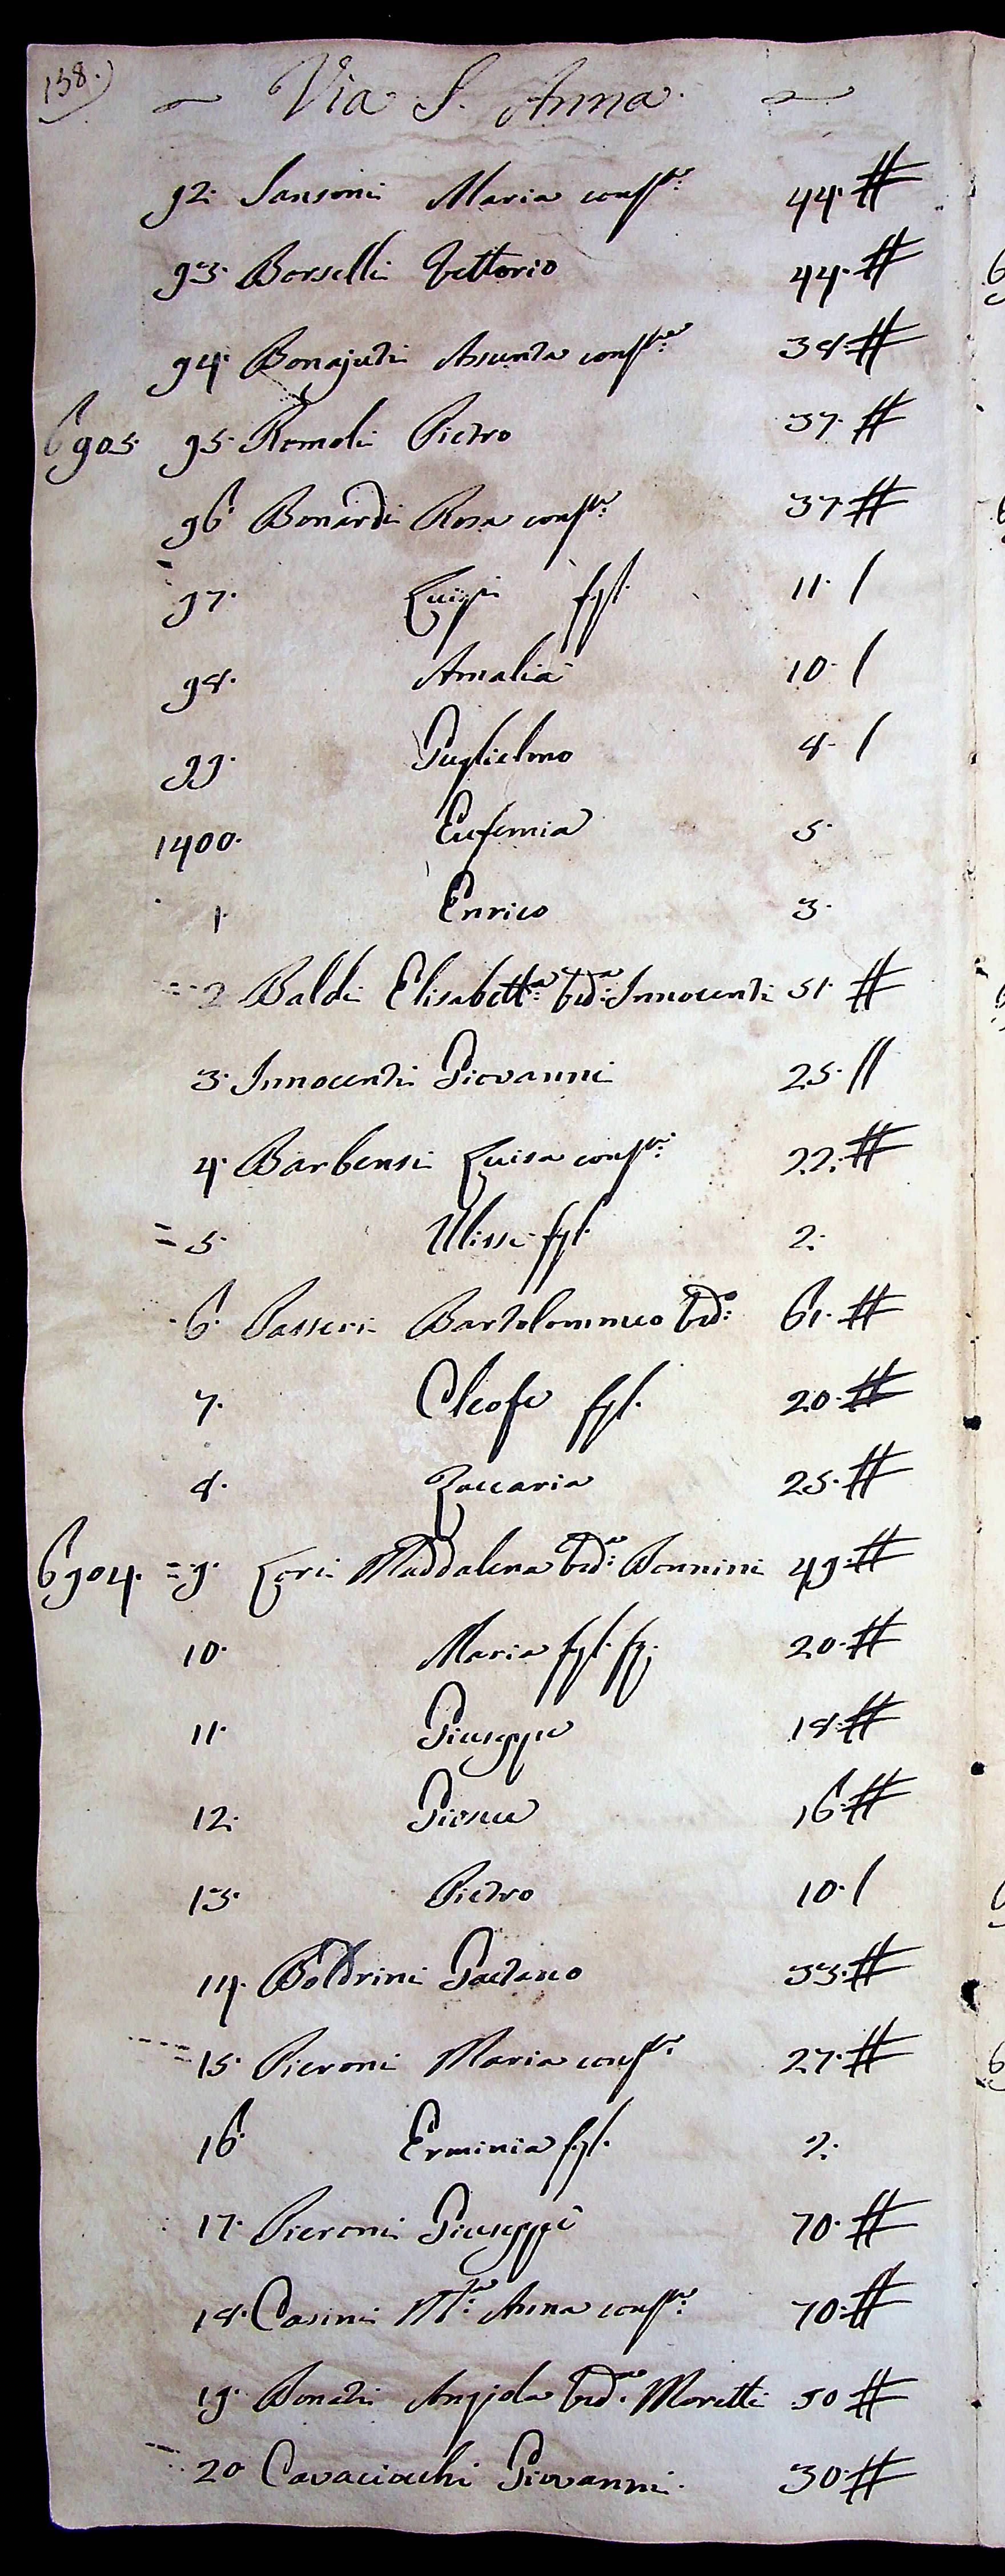 138.)
~ Via S. Anna. ~
92. Sansoni Maria consrte. 44. #
93. Borselli Vettorio 44. #
94. Bonajuti Assunta consrte. 38. #
6903. 95. Romoli Pietro 37. #
96. Bonardi Rosa consrte. 37. #
97. Luigi figl. 11. /
98. Amalia 10. /
99. Guglielmo 8. /
1400. Eufemia 5.
1. Enrico 3.
= 2 Baldi Elisabetta. Veda. Innocenti 51. #
3. Innocenti Giovanni 25. //
4. Barbensi Luisa consrte. 22. #
= 5. Ulisse figl. 2.
6. Passeri Bartolommeo Vedo. 61. #
7. Cleofe figl. 20. #
8. Zaccaria 25. #
6904. = 9. Lori Maddalena Veda. Bonnini 49. #
10. Maria figl. 20. #
11. Giuseppe 18. #
12. 16. #
13. Pietro 10. /
14. Boldrini Gaetano 33. #
= 15. Pieroni Maria consrte. 27. #
16. Erminia figl. 2.
17. Pieroni Giuseppe 70. #
18. Casini Ma. Anna consrte. 70. #
19. Donati Angiola Veda. Moretti 50 #
20 Cavaciocchi Giovanni. 30. #